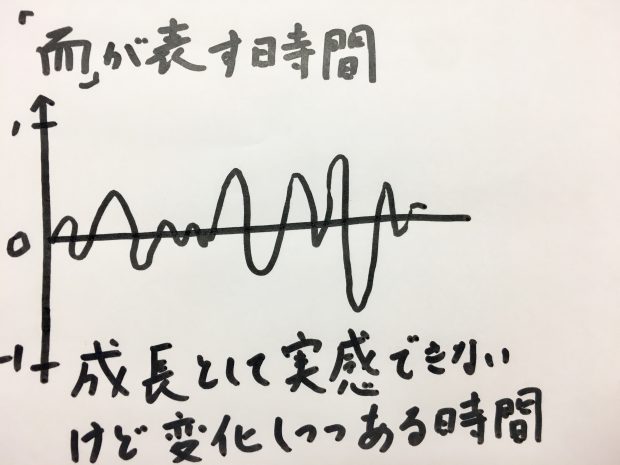 「而」が表す時間
1
0
-1
成長として実感できない
けど変化しつつある時間